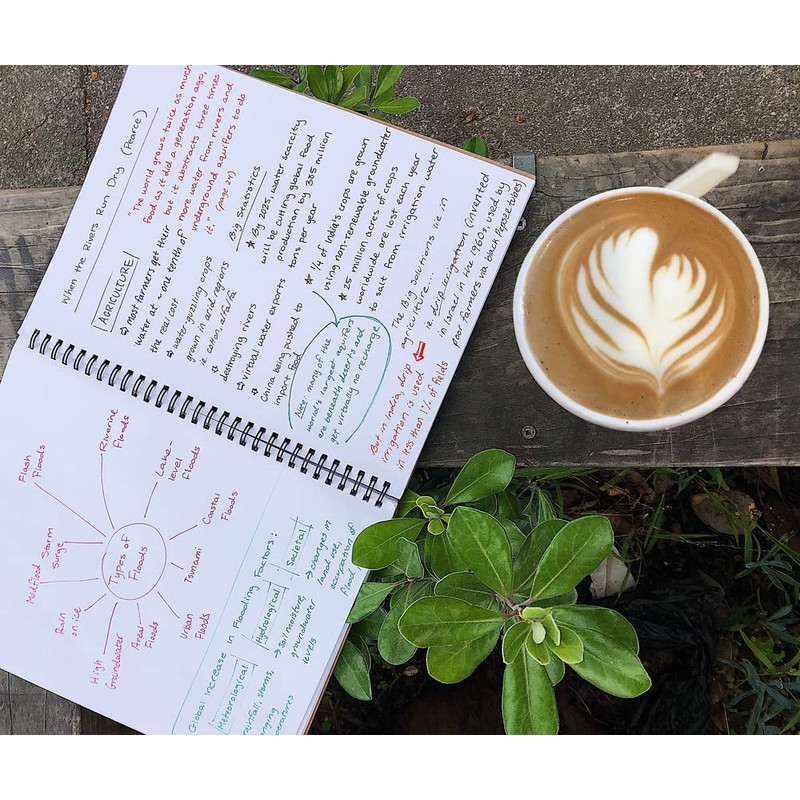 When the Rivers Run Dry (Pearce)
"The world grows twice as much
food as it did a generation ago,
but it abstracts three times
more water from rivers and
underground aquifers to do
it." (page 24)
AGRICULTURE
⇨ most farmers get their
water at ~ one tenth of
the real cost
⇨ water-guzzling crops
grown in arid regions
ie cotton, alfalfa
⇨ destroying rivers
⇨ virtual water exports
China being pushed to
import food
Big Statistics
★ By 2025, water scarcity
will be cutting global food
production by 385 million
tons per year
★ 1/4 of India's crops are grown
using non-renewable groundwater
★ 25 million acres of crops
worldwide are lost each year
to salt from irrigation water
Note: many of the
world's largest aquifers
are beneath deserts and
get virtually no recharge
The Big Solutions i.e. in
agriculture...
ie. drip irrigation (invented
in Israel in the 1960s, used by
poor farmers via back Pepsee tubes)
But in India, drip
irrigation is used
in less than 1% of fields
Types of
Floods
Flash
Floods
Riverine
Floods
Lake-
level
Floods
Coastal
Floods
Tsunami
Urban
Floods
Areal
Floods
High
Groundwater
Rain
on ice
Mudflood
Storm
Surge
Global increase in Flooding Factors:
Meteorological
rainfall, storms,
Hydrological
→ soil moisture,
groundwater
levels
Societal
→ changes in
land use,
occupation of
flood